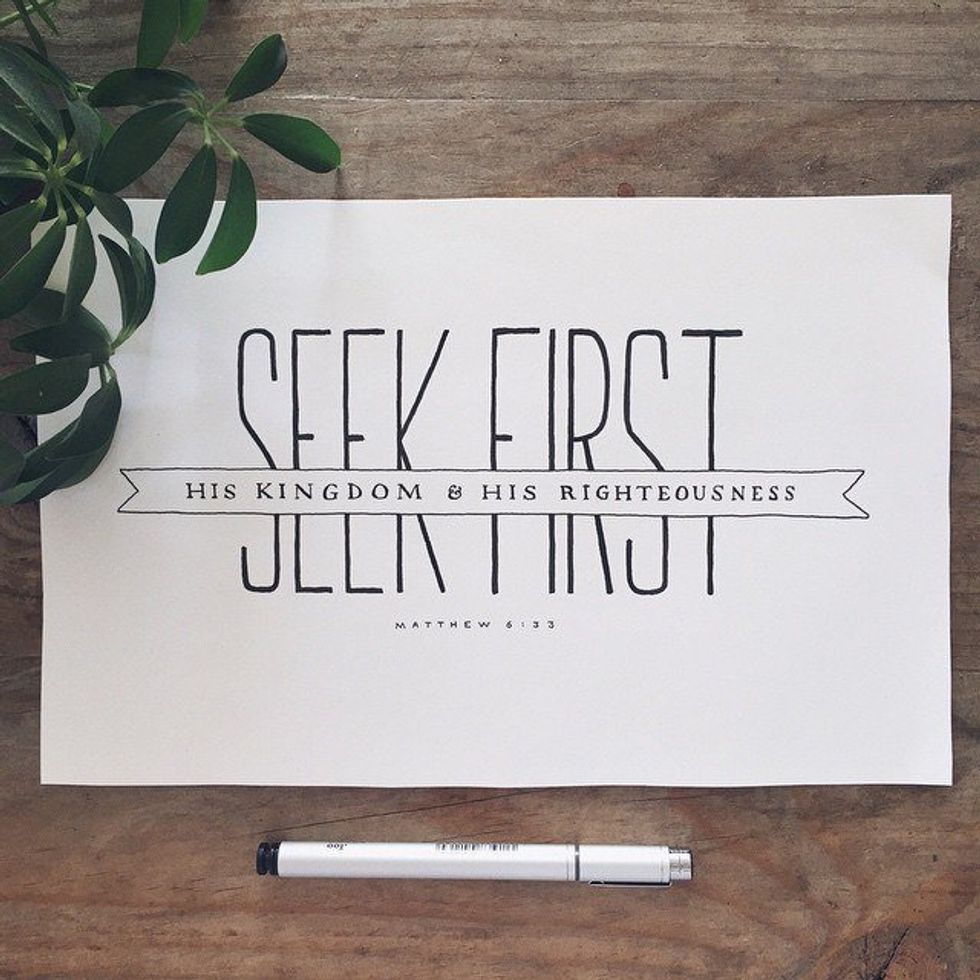 SEEK FIRST
HIS KINGDOM & HIS RIGHTEOUSNESS
MATTHEW 6:33